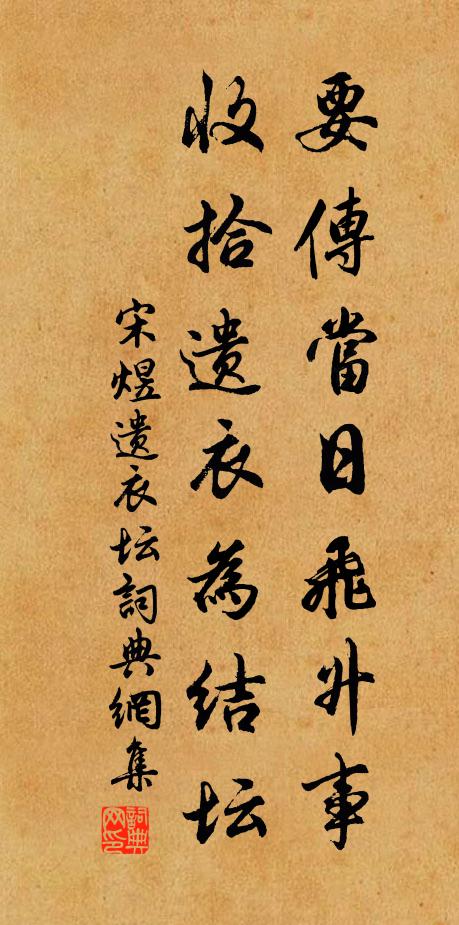 要傳當日飛升事
收拾遺衣為結坛
宋煜遺衣坛詞典網集
詞典网印